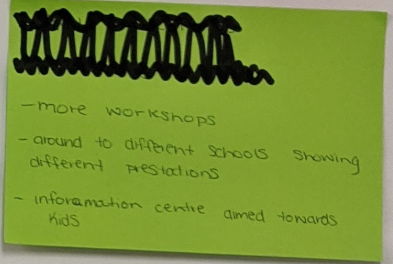 - more workshops
- around to different schools showing
different prestations
- inforamation centre aimed towards
kids